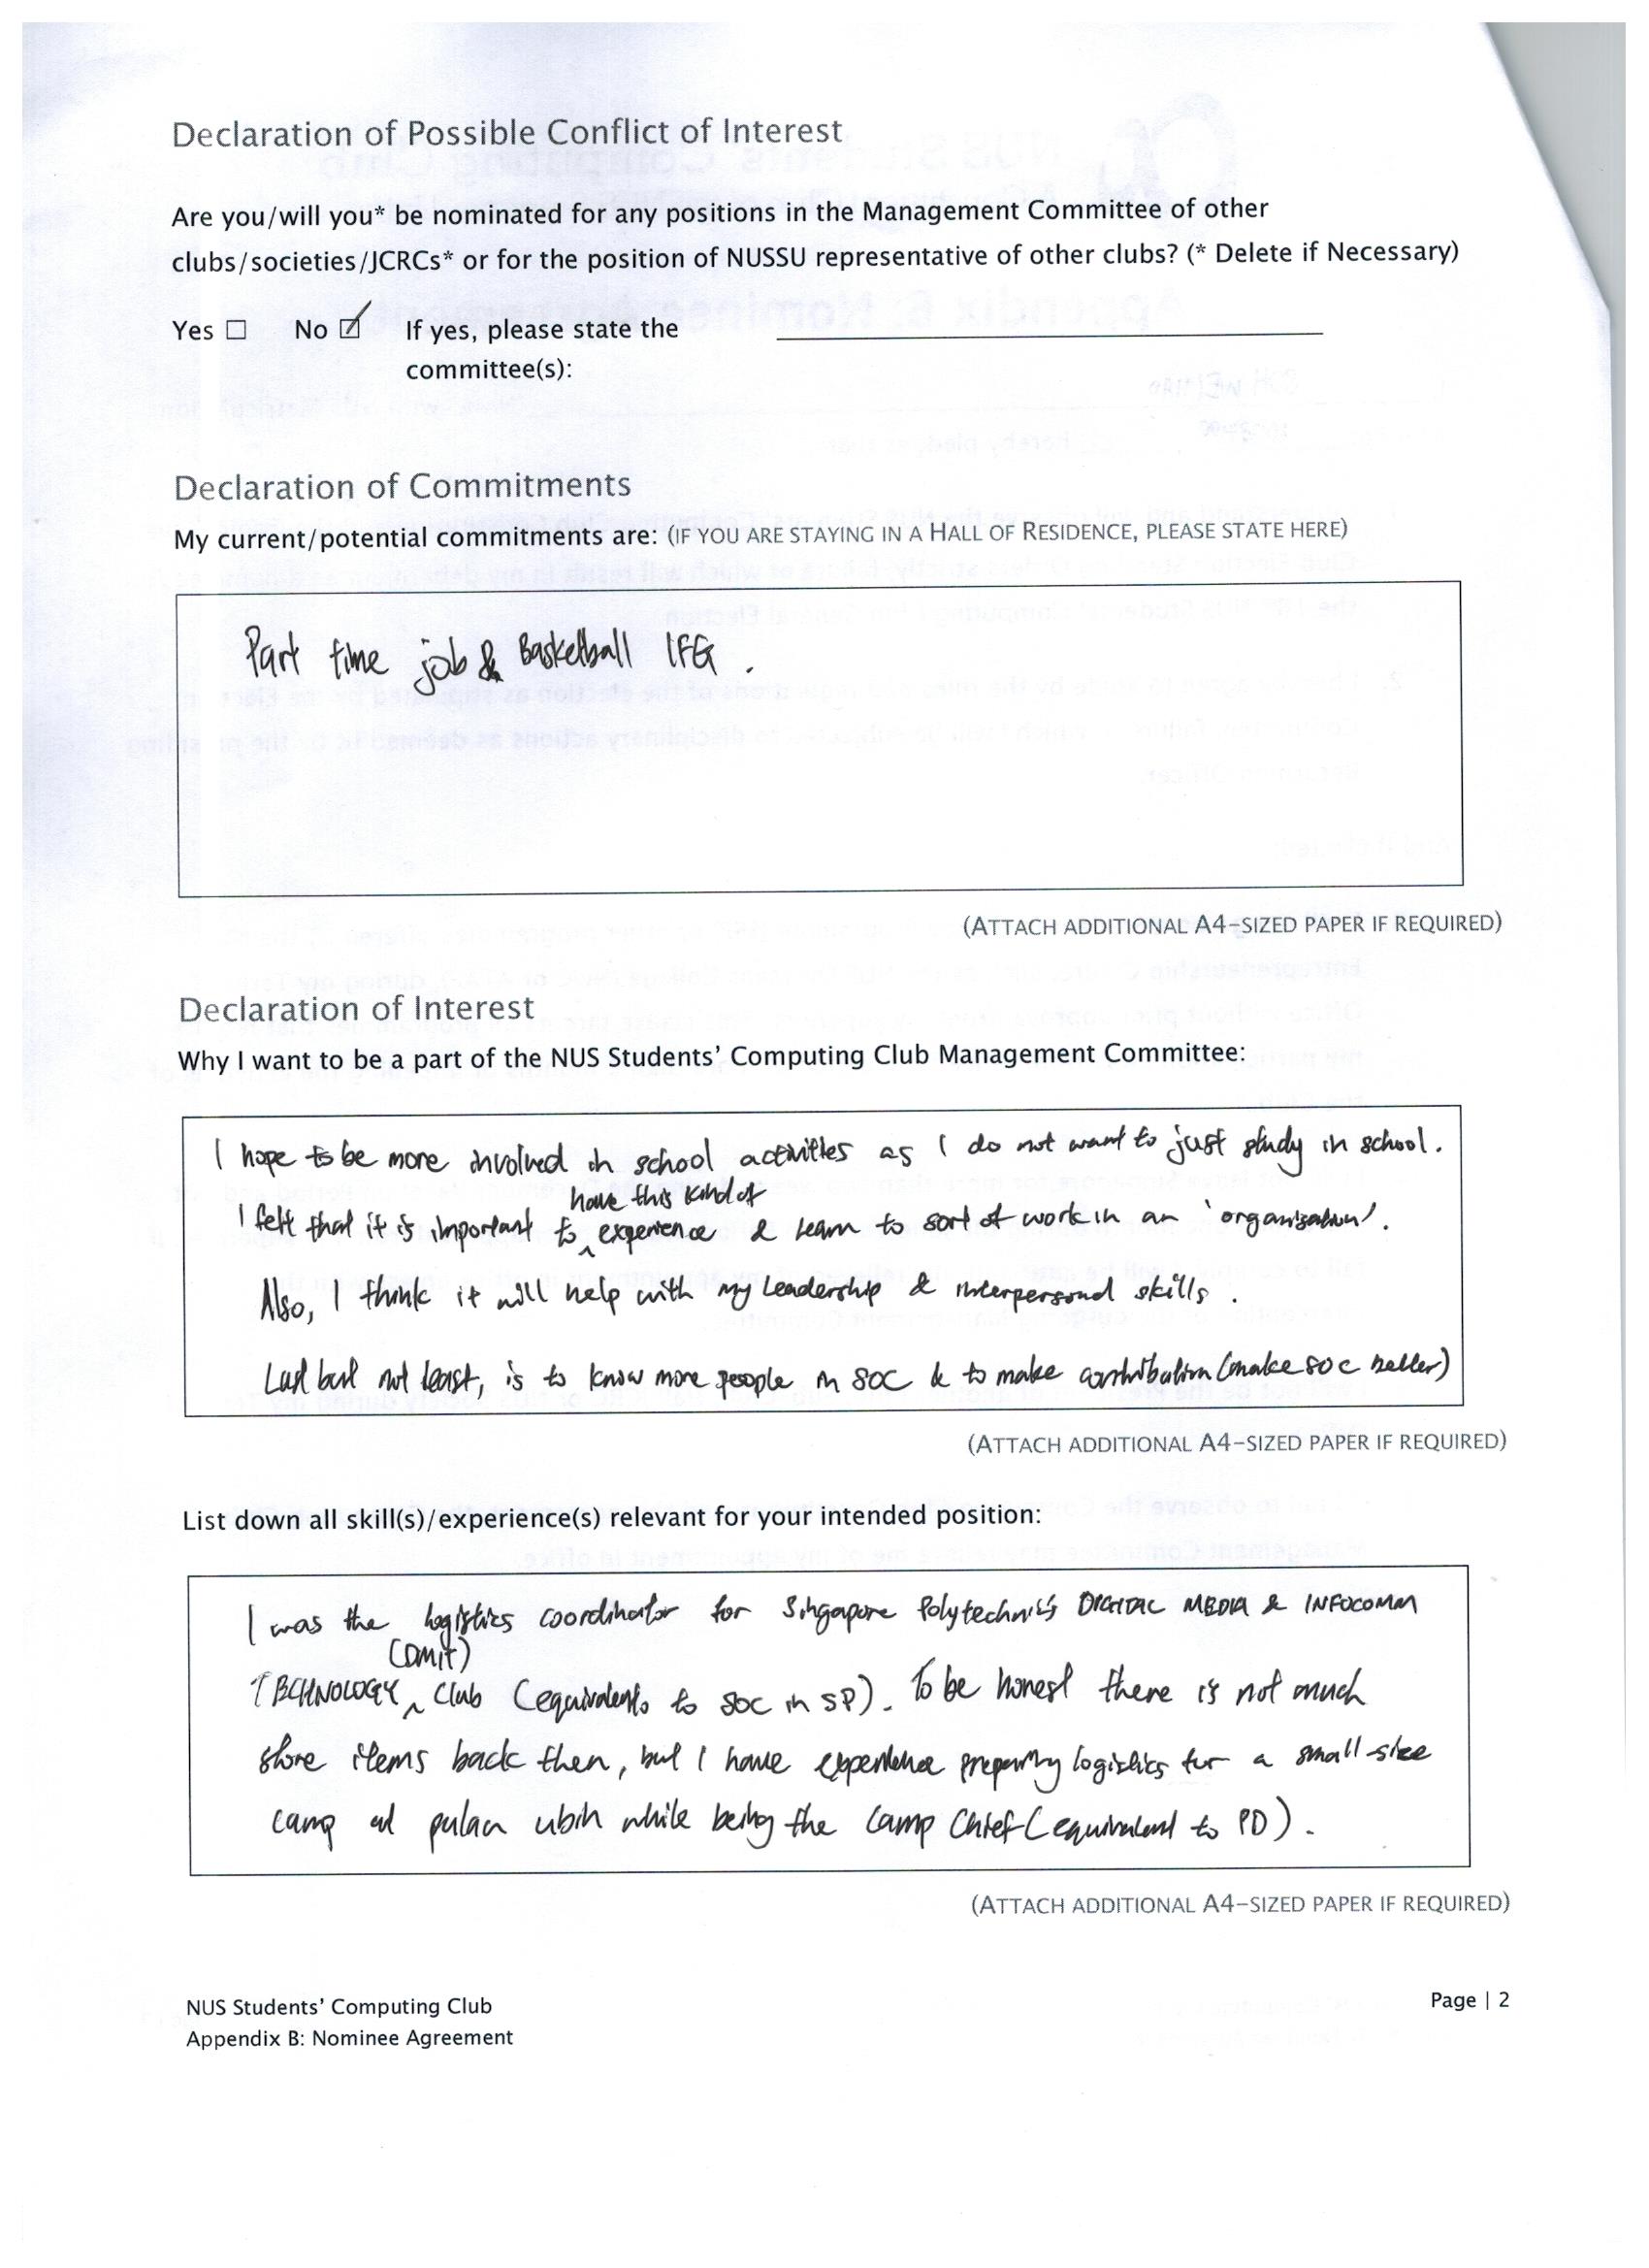 Declaration of Possible Conflict of Interest
Are you/will you* be nominated for any positions in the Management Committee of other
clubs/societies/JCRCs* or for the position of NUSSU representative of other clubs? (* Delete if Necessary)
Yes ☐ No ☑ If yes, please state the
committee(s):
Declaration of Commitments
My current/potential commitments are: (IF YOU ARE STAYING IN A HALL OF RESIDENCE, PLEASE STATE HERE)
Part time job & Basketball IFG .
(ATTACH ADDITIONAL A4-SIZED PAPER IF REQUIRED)
Declaration of Interest
Why I want to be a part of the NUS Students' Computing Club Management Committee:
I hope to be more involved in school activities as I do not want to just study in school.
have this kind of
I felt that it is important to ^ experience & learn to sort of work in an 'organisation'.
Also, I think it will help with my leadership & interpersonal skills .
Last but not least, is to know more people in SOC & to make contribution (make SOC better)
(ATTACH ADDITIONAL A4-SIZED PAPER IF REQUIRED)
List down all skill(s)/experience(s) relevant for your intended position:
I was the logistics coordinator for Singapore Polytechnic's DIGITAL MEDIA & INFOCOMM
(DMIT)
TECHNOLOGY ^ Club (equivalent to SOC in SP). To be honest there is not much
store items back then, but I have experience preparing logistics for a small-size
camp at pulau ubin while being the Camp Chief (equivalent to PD).
(ATTACH ADDITIONAL A4-SIZED PAPER IF REQUIRED)
NUS Students' Computing Club
Page | 2
Appendix B: Nominee Agreement